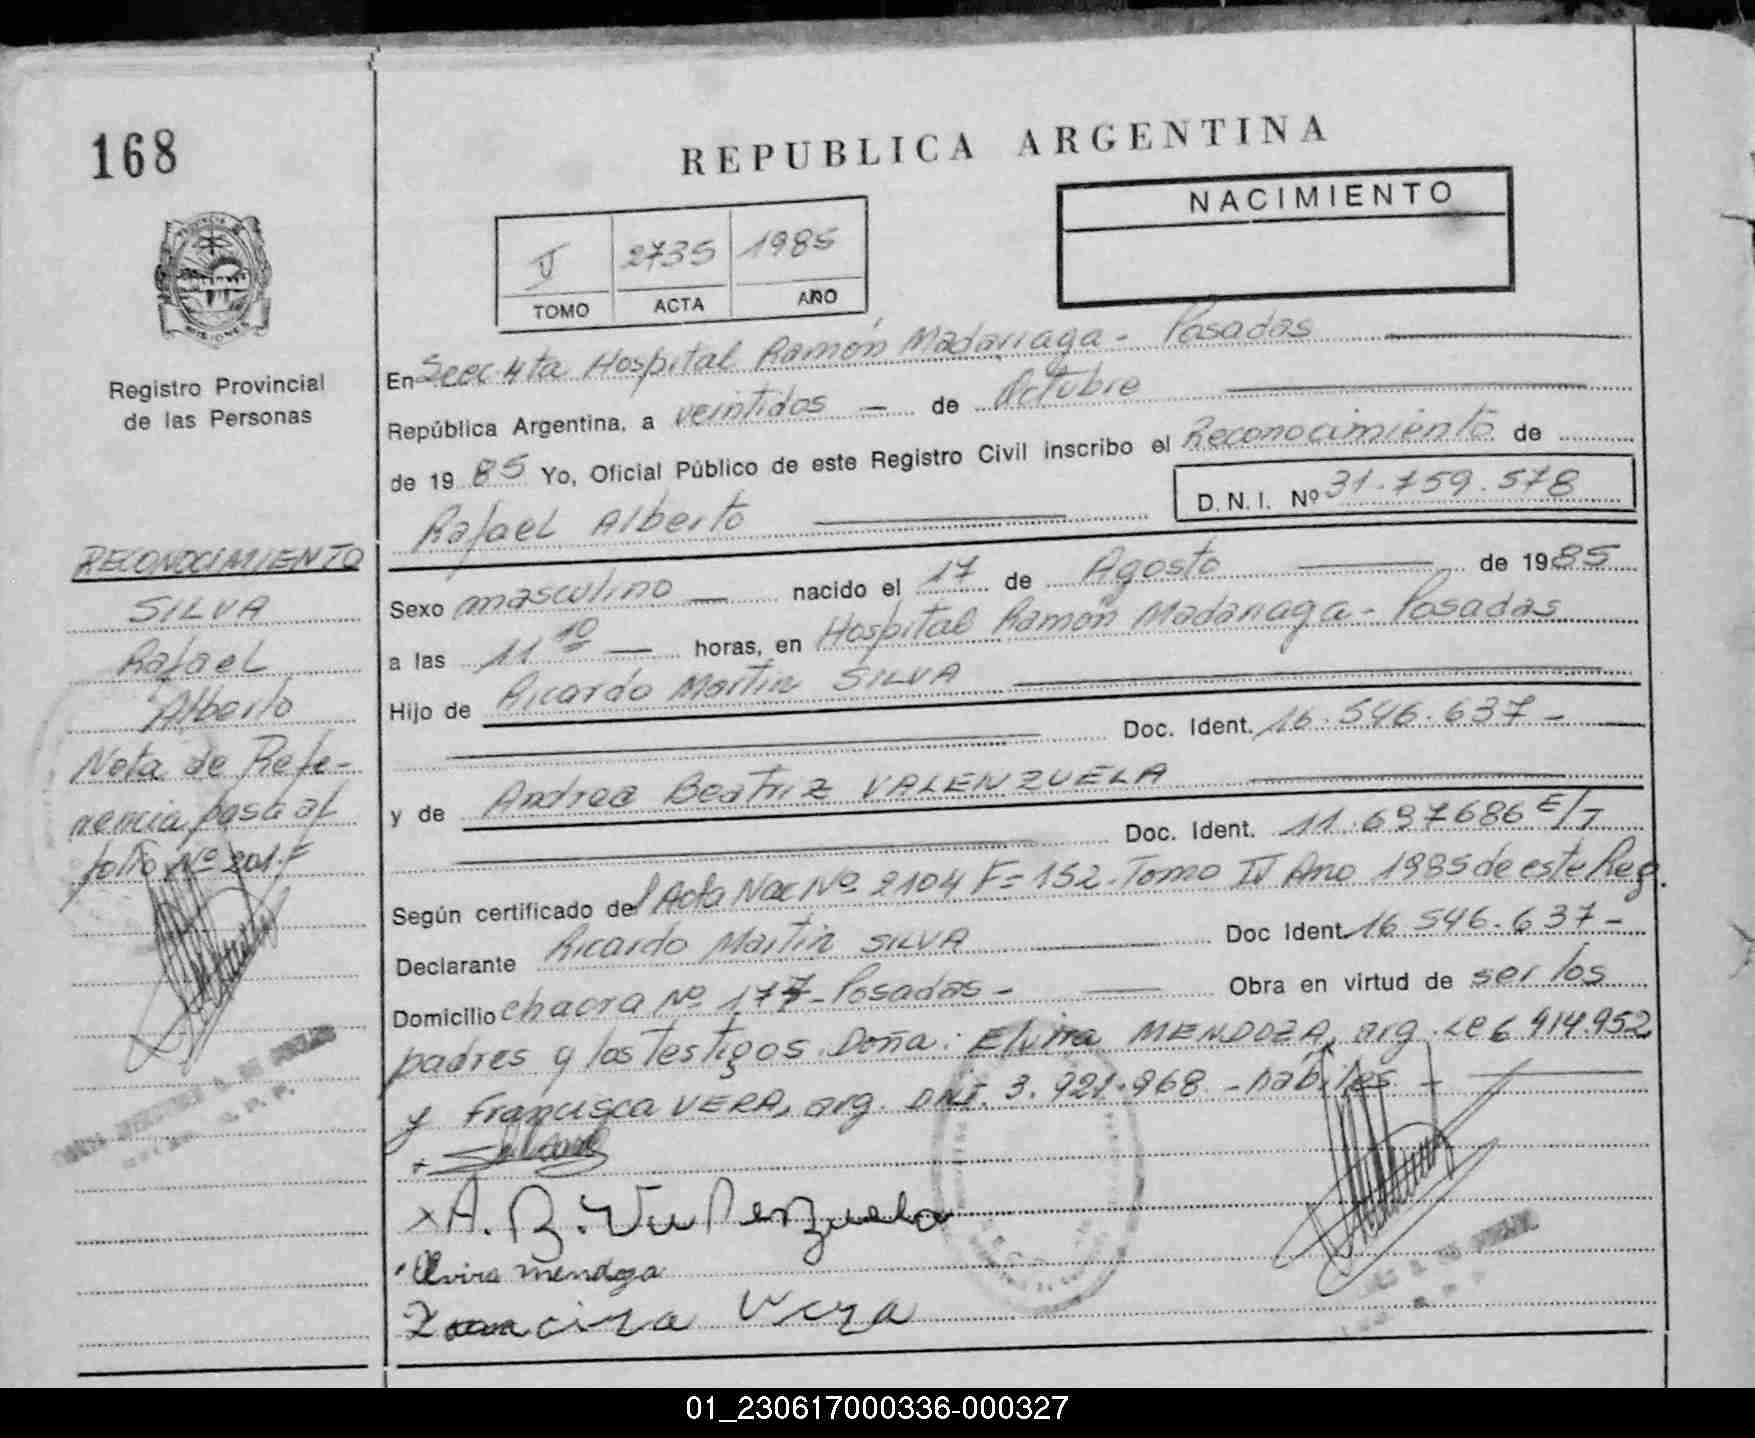 168
REPUBLICA ARGENTINA
NACIMIENTO
2735 1985
TOMO ACTA AÑO
PROVINCIA DE
MISIONES
Registro Provincial
de las Personas
En Secc. 4ta Hospital Ramón Madariaga - Posadas
República Argentina, a veintidos - de Octubre
de 1985 Yo, Oficial Público de este Registro Civil inscribo el Reconocimiento de
Rafael Alberto D.N.I. Nº 31.759.578
Sexo masculino nacido el 17 de Agosto de 1985
a las 11 10 horas, en Hospital Ramón Madariaga - Posadas
Hijo de Ricardo Martin SILVA
Doc. Ident. 16.546.637 -
y de Andrea Beatriz VALENZUELA
Doc. Ident. 11.697686 E/T
Según certificado del Acta Nac Nº 2104 Fº 152 - Tomo IV Año 1985 de este Reg.
Declarante Ricardo Martin SILVA Doc Ident. 16.546.637 -
Domicilio chacra Nº 177 - Posadas - Obra en virtud de ser los
padres y los testigos Doña: Elvira MENDOZA, arg. LC 6 914.952
y Francisca VERA, arg. DNI. 3.921.968 - hábiles -
A. B. Valenzuela
Elvira mendoza
Vera
RECONOCIMIENTO
SILVA
Rafael
Alberto
Nota de Refe-
rencia pasa al
folio Nº 201. F
01_230617000336-000327